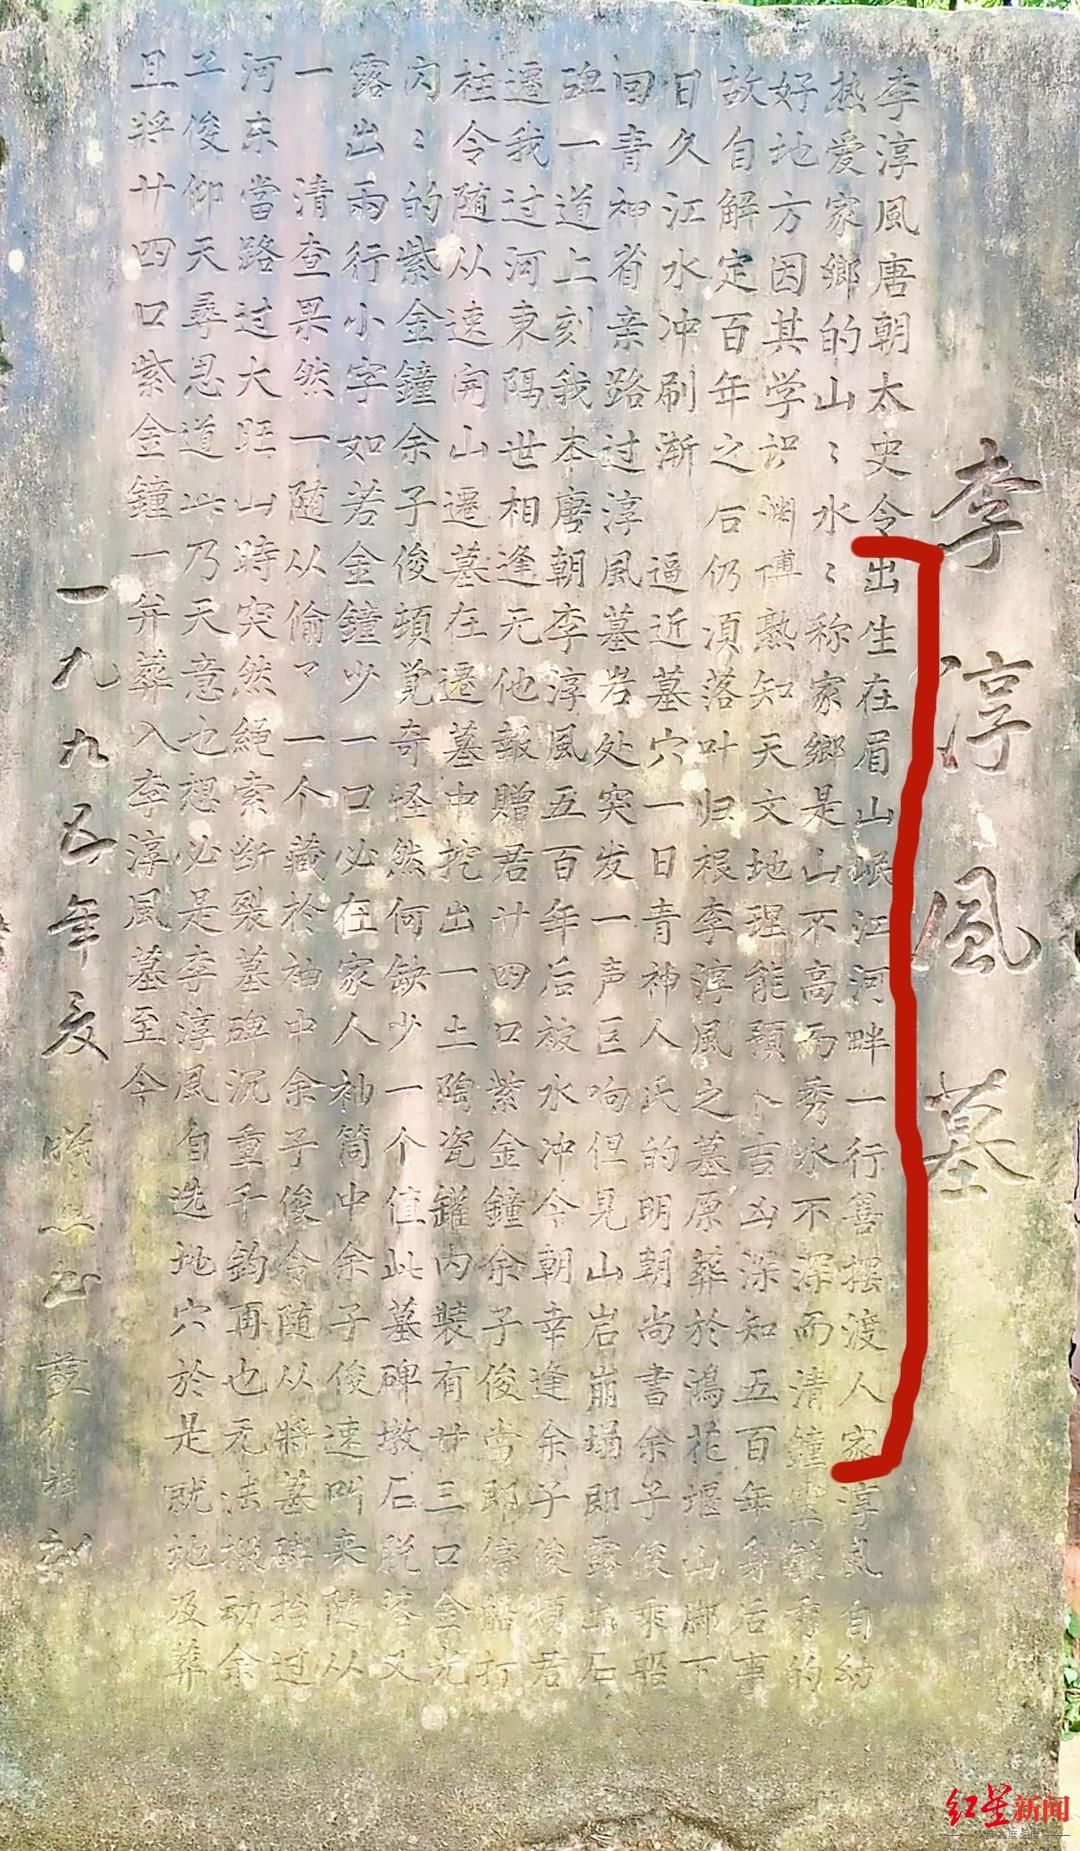 李淳風墓
李淳風唐朝太史令出生在眉山岷江河畔一行善摆渡人家淳風自幼
热爱家鄉的山〻水〻称家鄉是山不高而秀水不深而清鐘灵毓秀的
好地方因其学识渊博熟知天文地理能預卜吉凶深知五百年身后事
故自解定百年之后仍須落叶归根李淳風之墓原葬於鴻花堰山脚下
日久江水冲刷渐逼近墓穴一日青神人氏的明朝尚書余子俊乘船
回青神省亲路过淳風墓岩处突发一声巨响但見山岩崩塌即露出石
碑一道上刻我本唐朝李淳風五百年后被水冲今朝幸逢余子俊烦君
遷我过河東隔世相逢无他報贈君廿四口紫金鐘余子俊当即停船打
桩令随从速开山遷墓在遷墓中挖出一土陶瓷罐内裝有廿三口金光
闪〻的紫金鐘余子俊頓覚奇怪然何缺少一个值此墓碑墩石脱落又
露出両行小字如若金鐘少一口必在家人袖筒中余子俊速叫来随从
一一清查果然一随从偷了一个藏於袖中余子俊令随从將墓碑抬过
河东當路过大旺山時突然繩索断裂墓碑沉重千鈞再也无法搬动余
子俊仰天尋思道此乃天意也想必是李淳風自选地穴於是就地及葬
且将廿四口紫金鐘一并葬入李淳風墓至今
一九九五年夏
红星新闻
深度 态度 温度